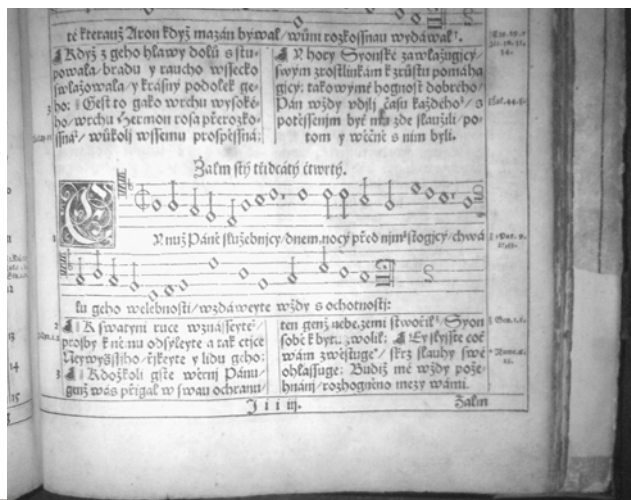 té kterauž Aron když mazán býwal/wůni rozkoſſnau wydáwal.
Když z geho hlawy dolů ſſtu-
powala/bradu y raucho wſſecko
ſwlažowala/y kráſný podolek ge-
ho: Geſt to gako wrchu wyſoké-
ho/wrchu Hermon roſa přerozko-
ſſná/wůkolj wſſemu proſpěſſná:
hory Syonſké zawlažugjcý/
ſwým zroſtlinkám k zrůſtu pomáha
gjcý: takowýmě hognoſt dobrého/
Pán wždy vdělj čaſu každého/ s
potěſſenjm byť mu zde ſlaužili/po-
tom y wěčně s njm byli.
Žalm ſtý třidcátý čtwrtý.
Y nuž Páně ſlužebnjcy/dnem, nocý před njm ſtogjcý/chwá
lu geho welebnoſti/wzdáweyte wždy s ochotnoſtj:
K ſwatyni ruce wznáſſeyte/
proſby k němu odſyleyte a tak ctjce
Neywyšſſjho/čiňte y lidu geho:
Kdožkoli gſte wěrnj Pánu/
genž wás přigal w ſwau ochranu
ten genž nebe, zemi ſtwořil/Syon
ſobě k bytu zwolil: Ey ſlyſſte coť
wám zwěſtuge/ ſkrz ſlauhy ſwé
ohlaſſuge: Budiž mé wždy pože-
hnánj/rozhogněno mezy wámi.
J iiij. Žalm